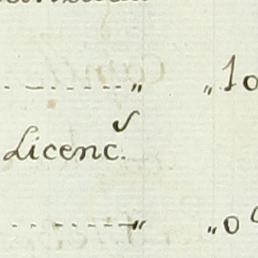 ........." „10
Licenc.s
........." „0